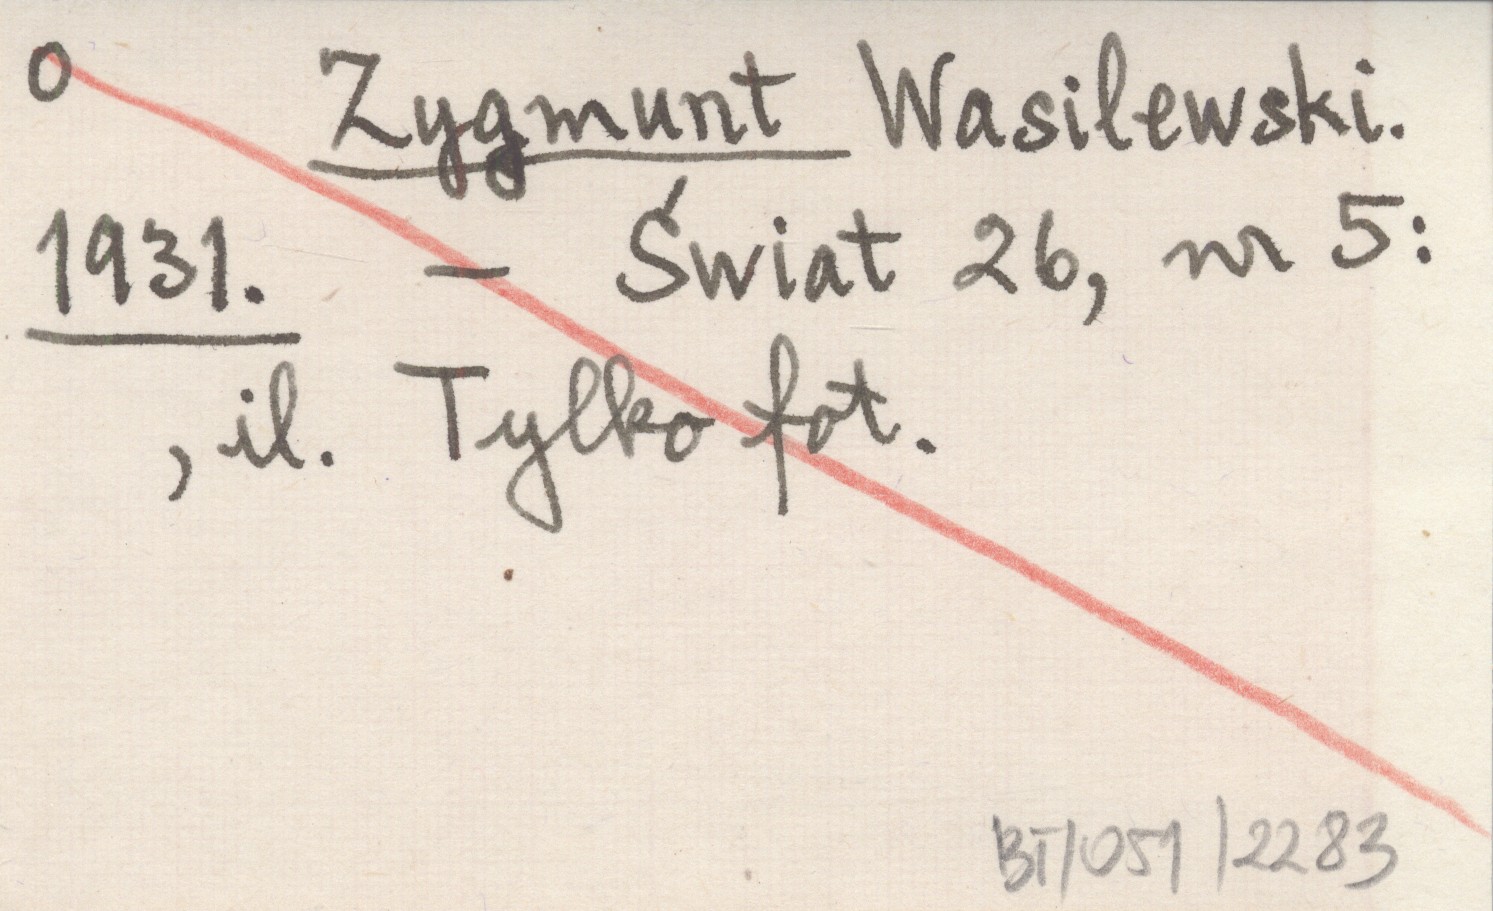 O Zygmunt Wasilewski.
1931. – Świat 26, nr 5:
, il. Tylko fot.
BT/051/2283